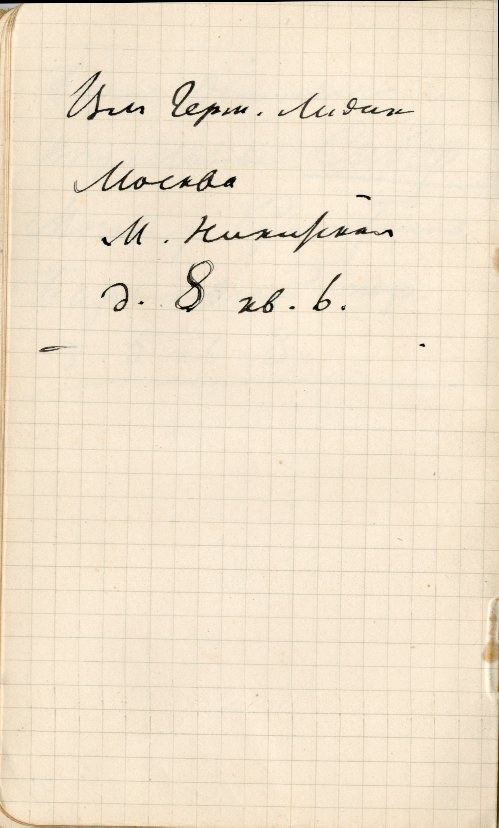 Вл. Герм. Лидин
Москва
М. Никитская
д. 8 кв. 6.